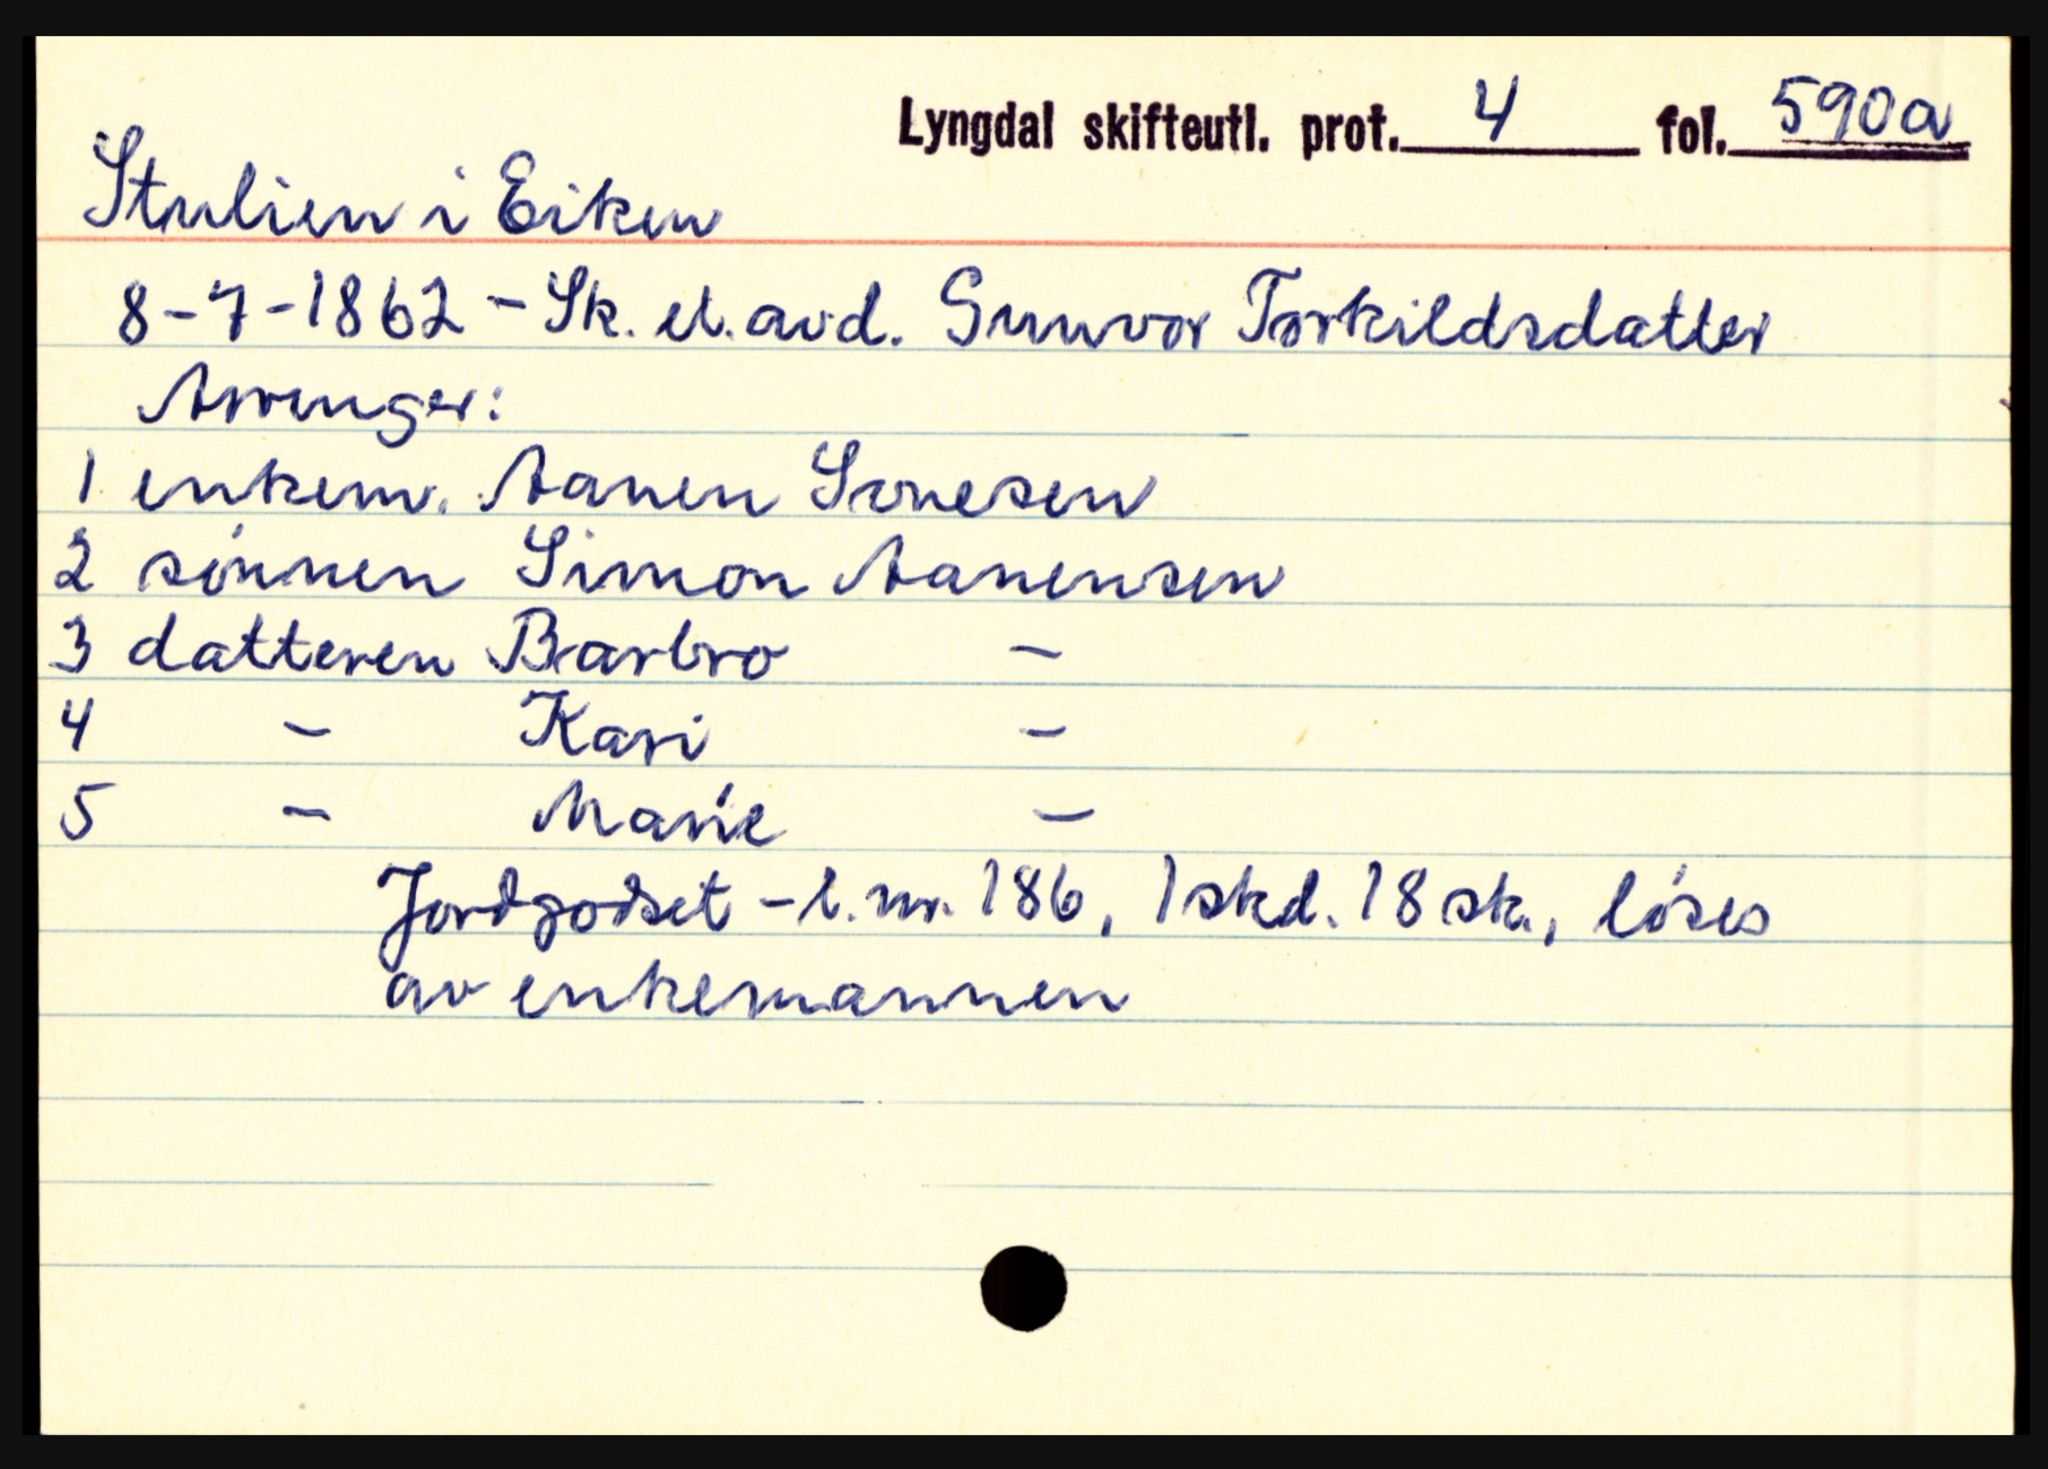 Lyngdal skifteutl. prot. 4 fol. 590a
Stulien i Eiken
8-7-1862 - Sk. et. avd. Gunvor Torkildsdatter
Arvinger:
1 enkem. Aanen Ivonesen
2 sønnen Simon Aanensen
3 datteren Barbro -
4 - Kari -
5 - Marie -
Jordgodset - l. nr. 186, 1 skd. 18 sk., løses
av enkemannen